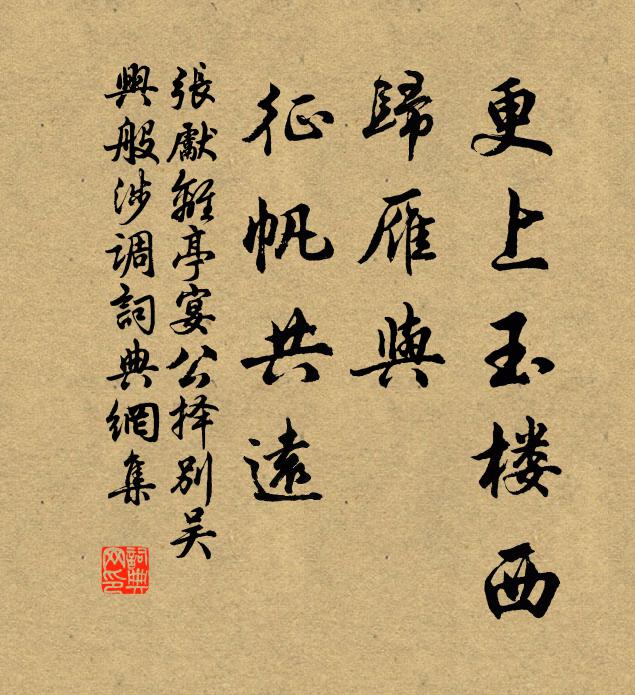 更上玉楼西
歸雁與
征帆共遠
張獻離亭宴公择别吴
興般涉调詞典網集
詞典网印